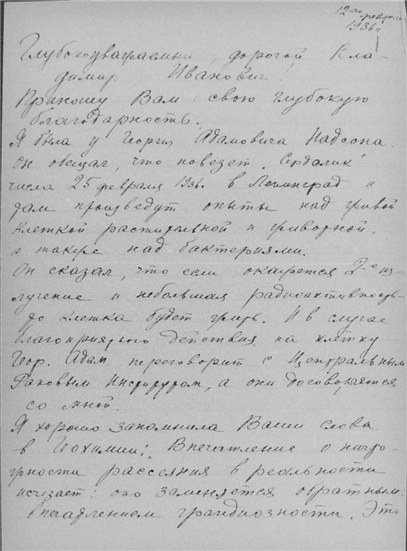 12го февраля
1936г
Глубокоуважаемый, дорогой Вла-
димир Иванович.
Приношу Вам свою глубокую
благодарность.
Я была у Георгия Адамовича Надсона.
Он обещал, что повезет
числа 25 февраля 1936. в Ленинград и
там произведут опыты над живой
клеткой растительной и животной,
а также над бактериями.
Он сказал, что если окажется 2-е из-
лучение и небольшая радиоактивность-
то клетка будет жить. И в случае
благоприятного действия на клетку
Геор. Адам. переговорит с Центральным
Раковым Институтом, а они договорятся
со мной.
Я хорошо запомнила Ваши слова
в Геохимии: Впечатление о ничто-
жности рассеяния в реальности
исчезает: оно заменяется обратным
впечатлением грандиозности. Это